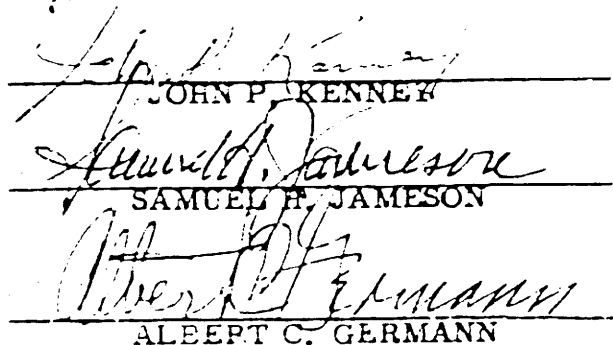 John P. Kenney
JOHN P. KENNEY
Samuel H. Jameson
SAMUEL H. JAMESON
Albert C. Germann
ALBERT C. GERMANN